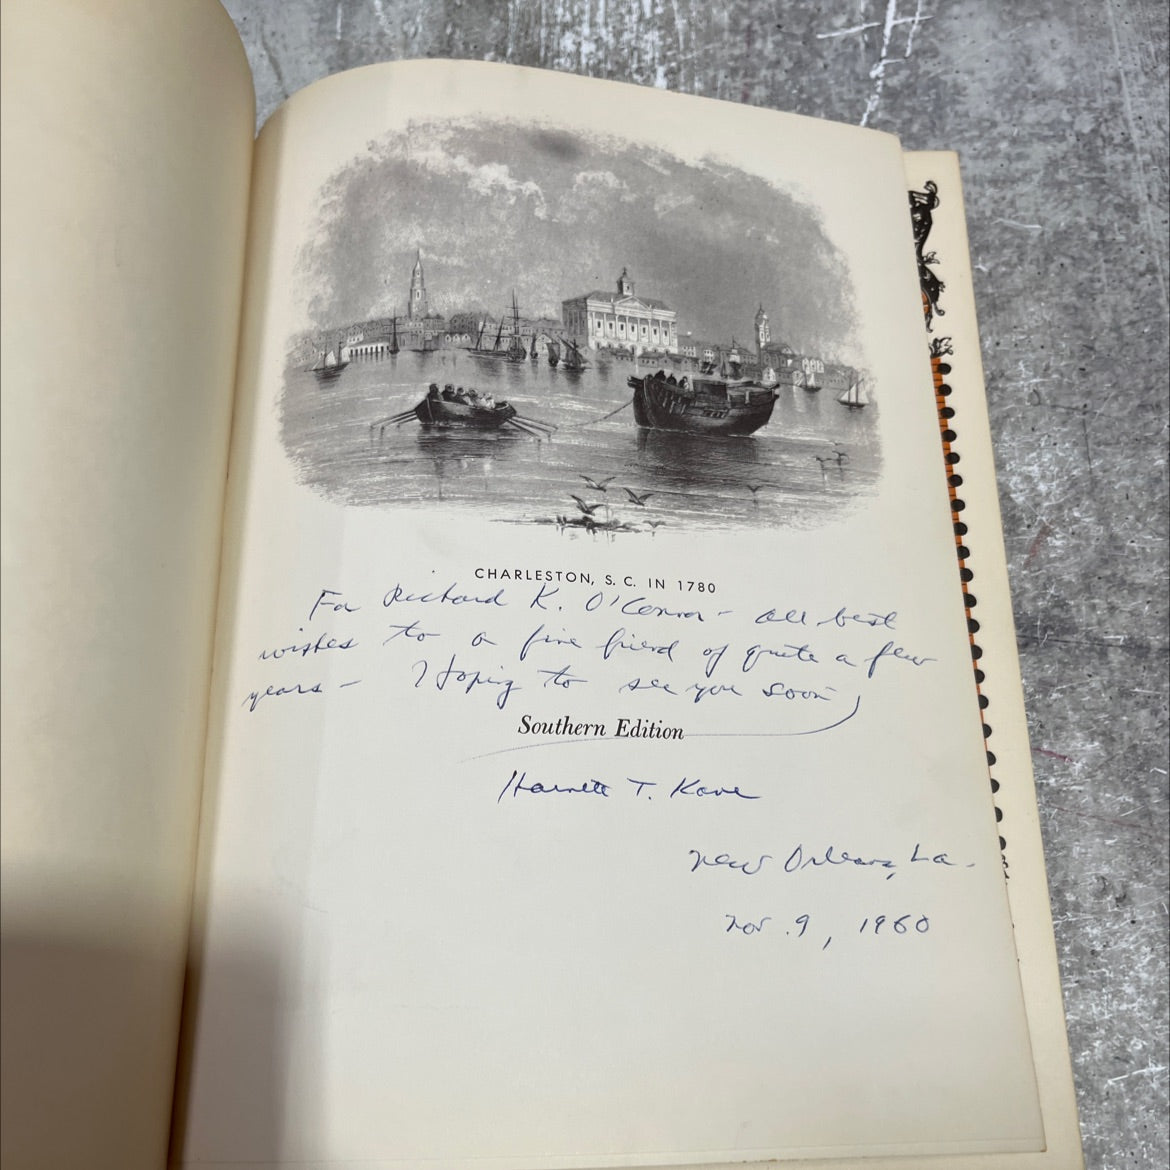 CHARLESTON, S. C. IN 1780
For Richard K. O'Connor – all best
wishes to a fine friend of quite a few
years – Hoping to see you soon
Southern Edition
Harnett T. Kane
New Orleans, La.
Nov. 9, 1960